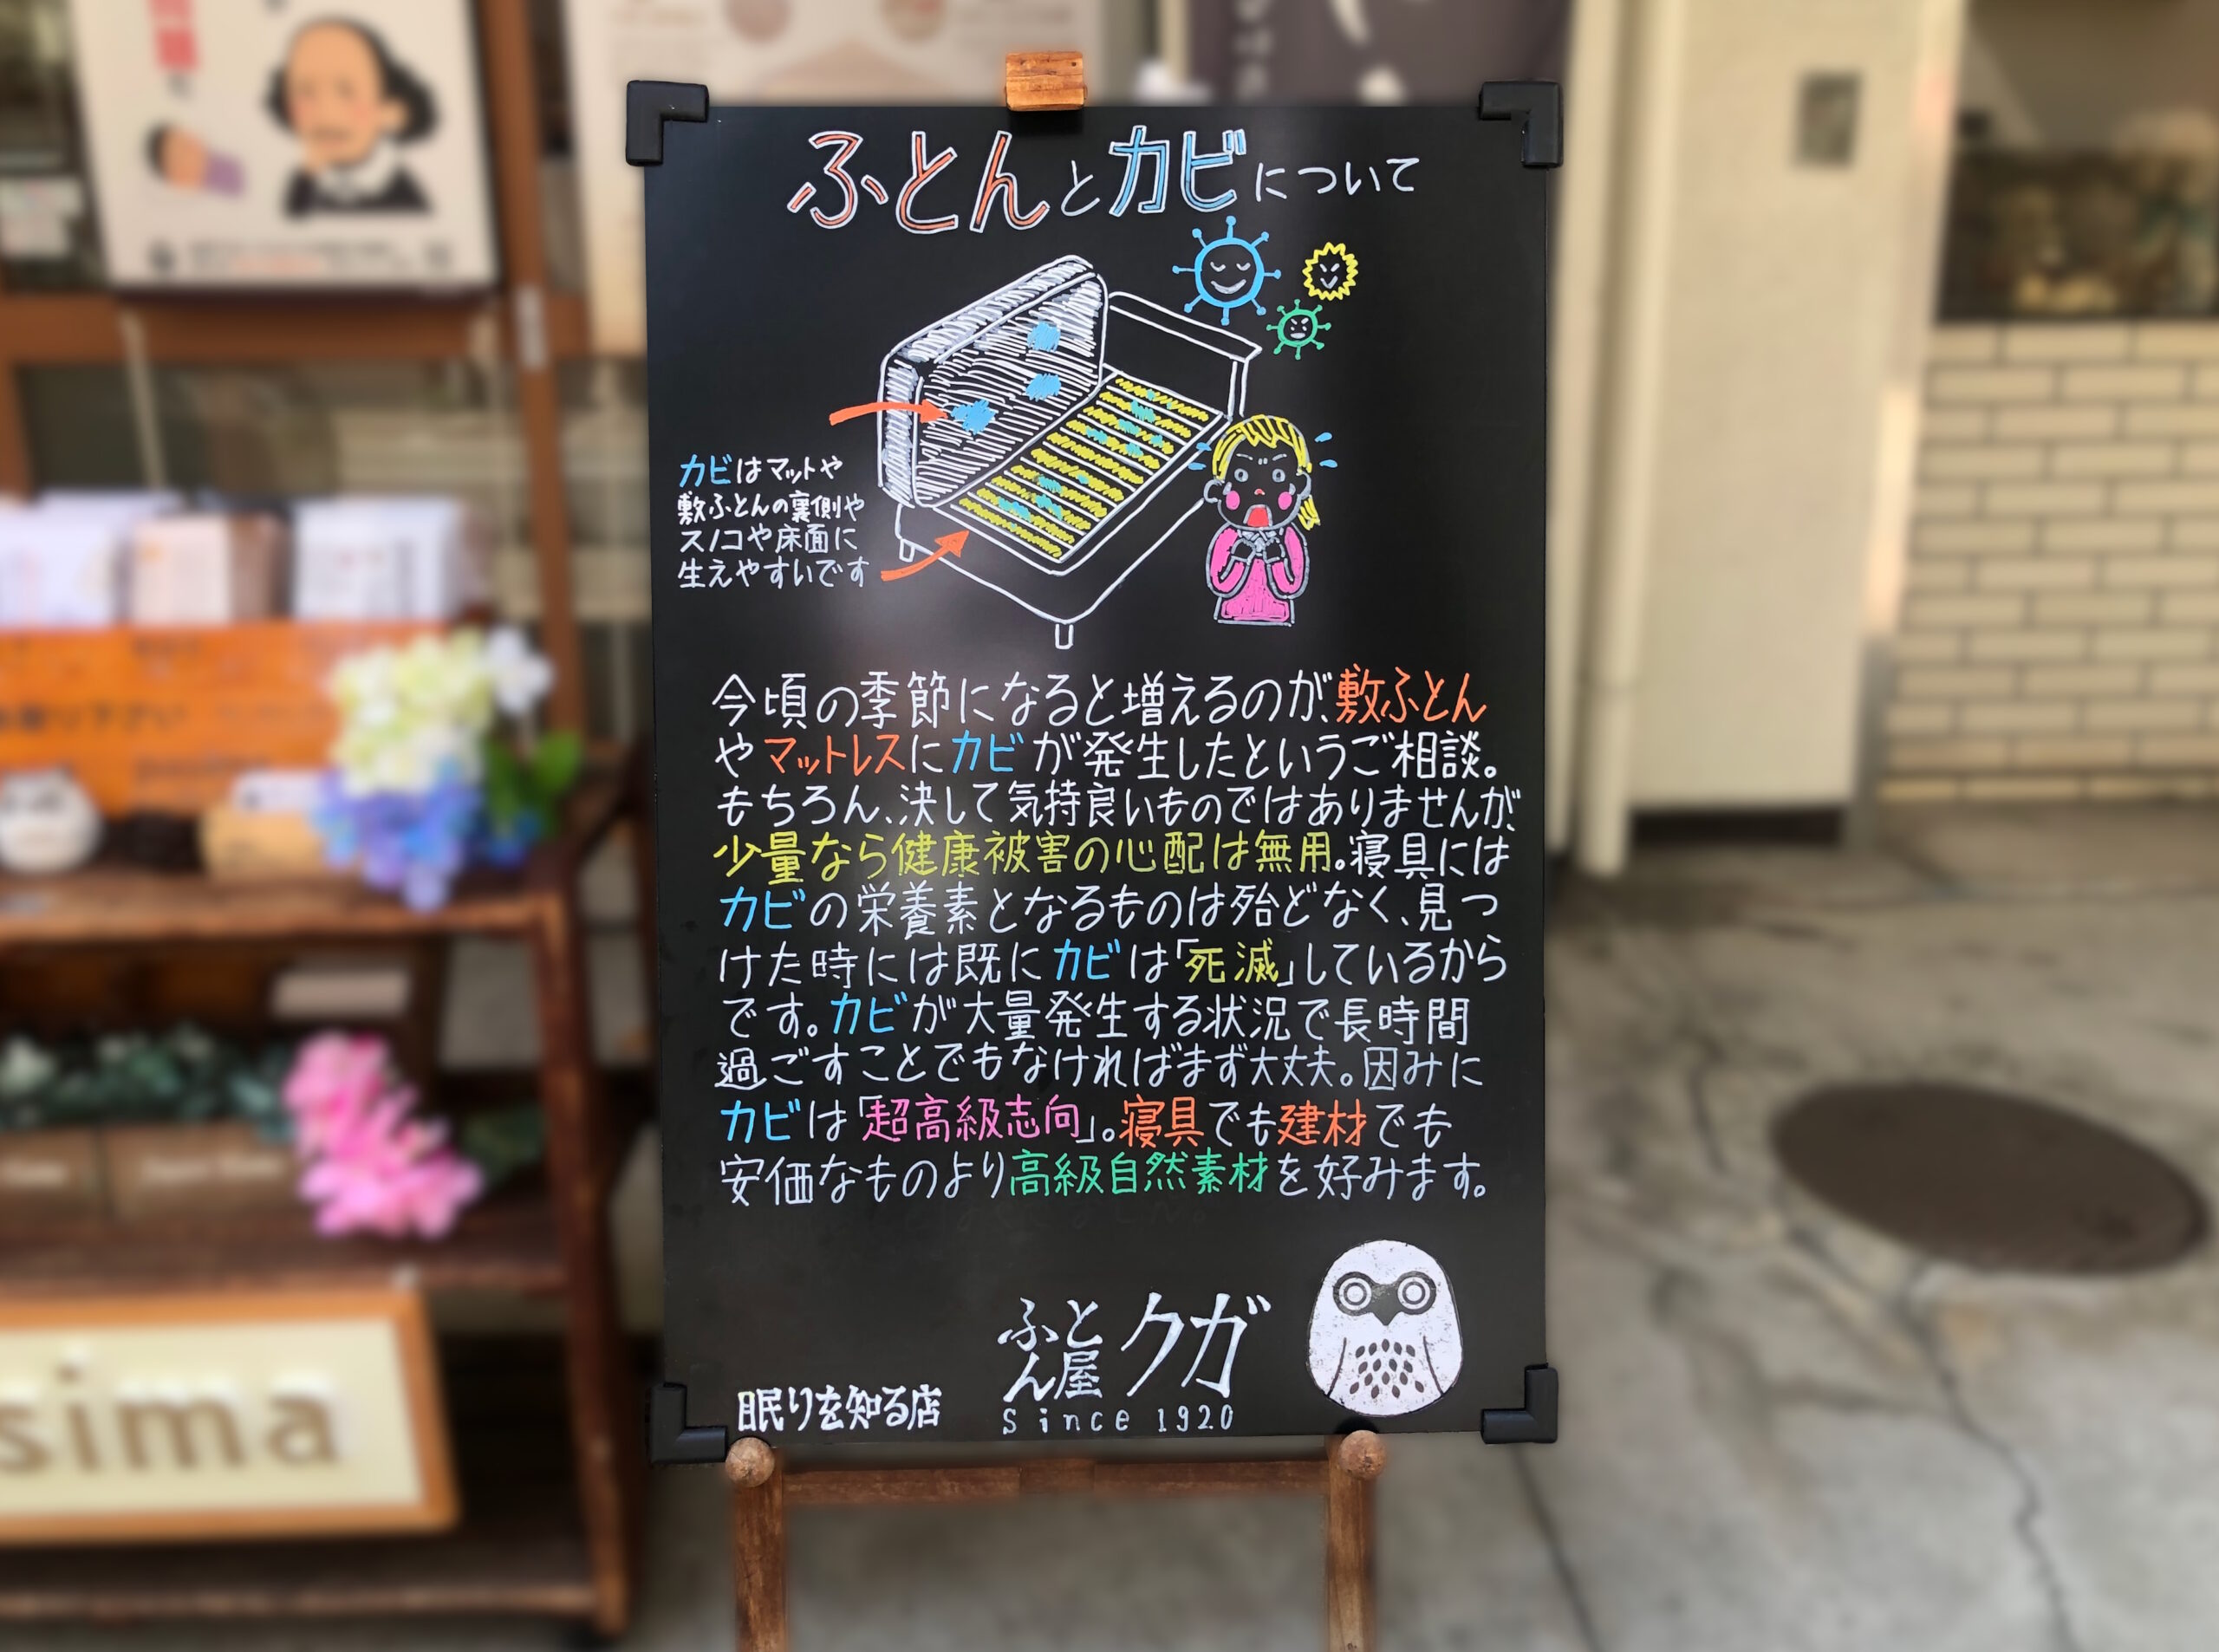 ふとんとカビについて
カビはマットや
敷ふとんの裏側や
スノコや床面に
生えやすいです
今頃の季節になると増えるのが、敷ふとん
やマットレスにカビが発生したというご相談。
もちろん、決して気持良いものではありませんが、
少量なら健康被害の心配は無用。寝具には
カビの栄養素となるものは殆どなく、見つ
けた時には既にカビは「死滅」しているから
です。カビが大量発生する状況で長時間
過ごすことでもなければまず大丈夫。因みに
カビは「超高級志向」。寝具でも建材でも
安価なものより高級自然素材を好みます。
眠りを知る店
ふとん屋クガ
Since 1920
sima